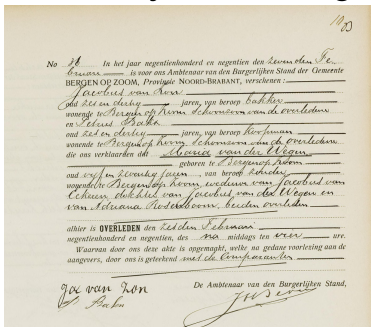 No 86 In het jaar negentienhonderd en negentien den zevenden Fe
bruari is voor ons Ambtenaar van den Burgerlijken Stand der Gemeente
BERGEN OP ZOOM, Provincie NOORD-BRABANT, verschenen:
Jacobus van Zon
oud zes en dertig jaren, van beroep bakker
wonende te Bergen op Zoom, schoonzoon van de overledene
en Petrus
oud zes en dertig jaren, van beroep koopman
wonende te Bergen op Zoom, schoonzoon van de overledene
die ons verklaarden dat Maria van der Wegen
geboren te Bergen op Zoom
oud vijf en zeventig jaren, van beroep zonder
wonende te Bergen op Zoom, weduwe van Jacobus van
dochter van Jacobus van der Wegen en
van Adriana Rosenboom, beiden overleden
alhier is OVERLEDEN den zesden Februari
negentienhonderd en negentien, des na middags ten vier ure.
Waarvan door ons deze akte is opgemaakt, welke na gedane voorlezing aan de
aangevers, door ons is geteekend met de Comparanten
De Ambtenaar van den Burgerlijken Stand,
Jac van Zon